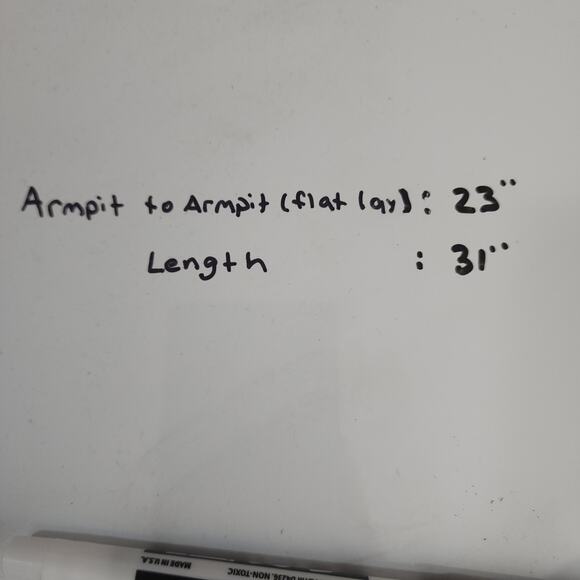 Armpit to Armpit (flat lay): 23"
Length : 31"
MADE IN U.S.A.
D4236. NON-TOXIC